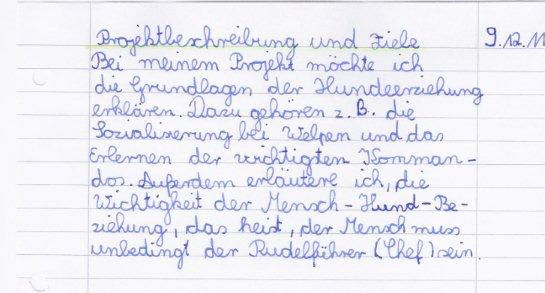 Projektbeschreibung und Ziele 9.12.11
Bei meinem Projekt möchte ich
die Grundlagen der Hundeerziehung
erklären. Dazu gehören z. B. die
Sozialisierung bei Welpen und das
Erlernen der wichtigten Komman-
dos. Außerdem erläutere ich, die
Wichtigkeit der Mensch-Hund-Be-
ziehung, das heist, der Mensch muss
unbedingt der Rudelführer (Chef) sein.